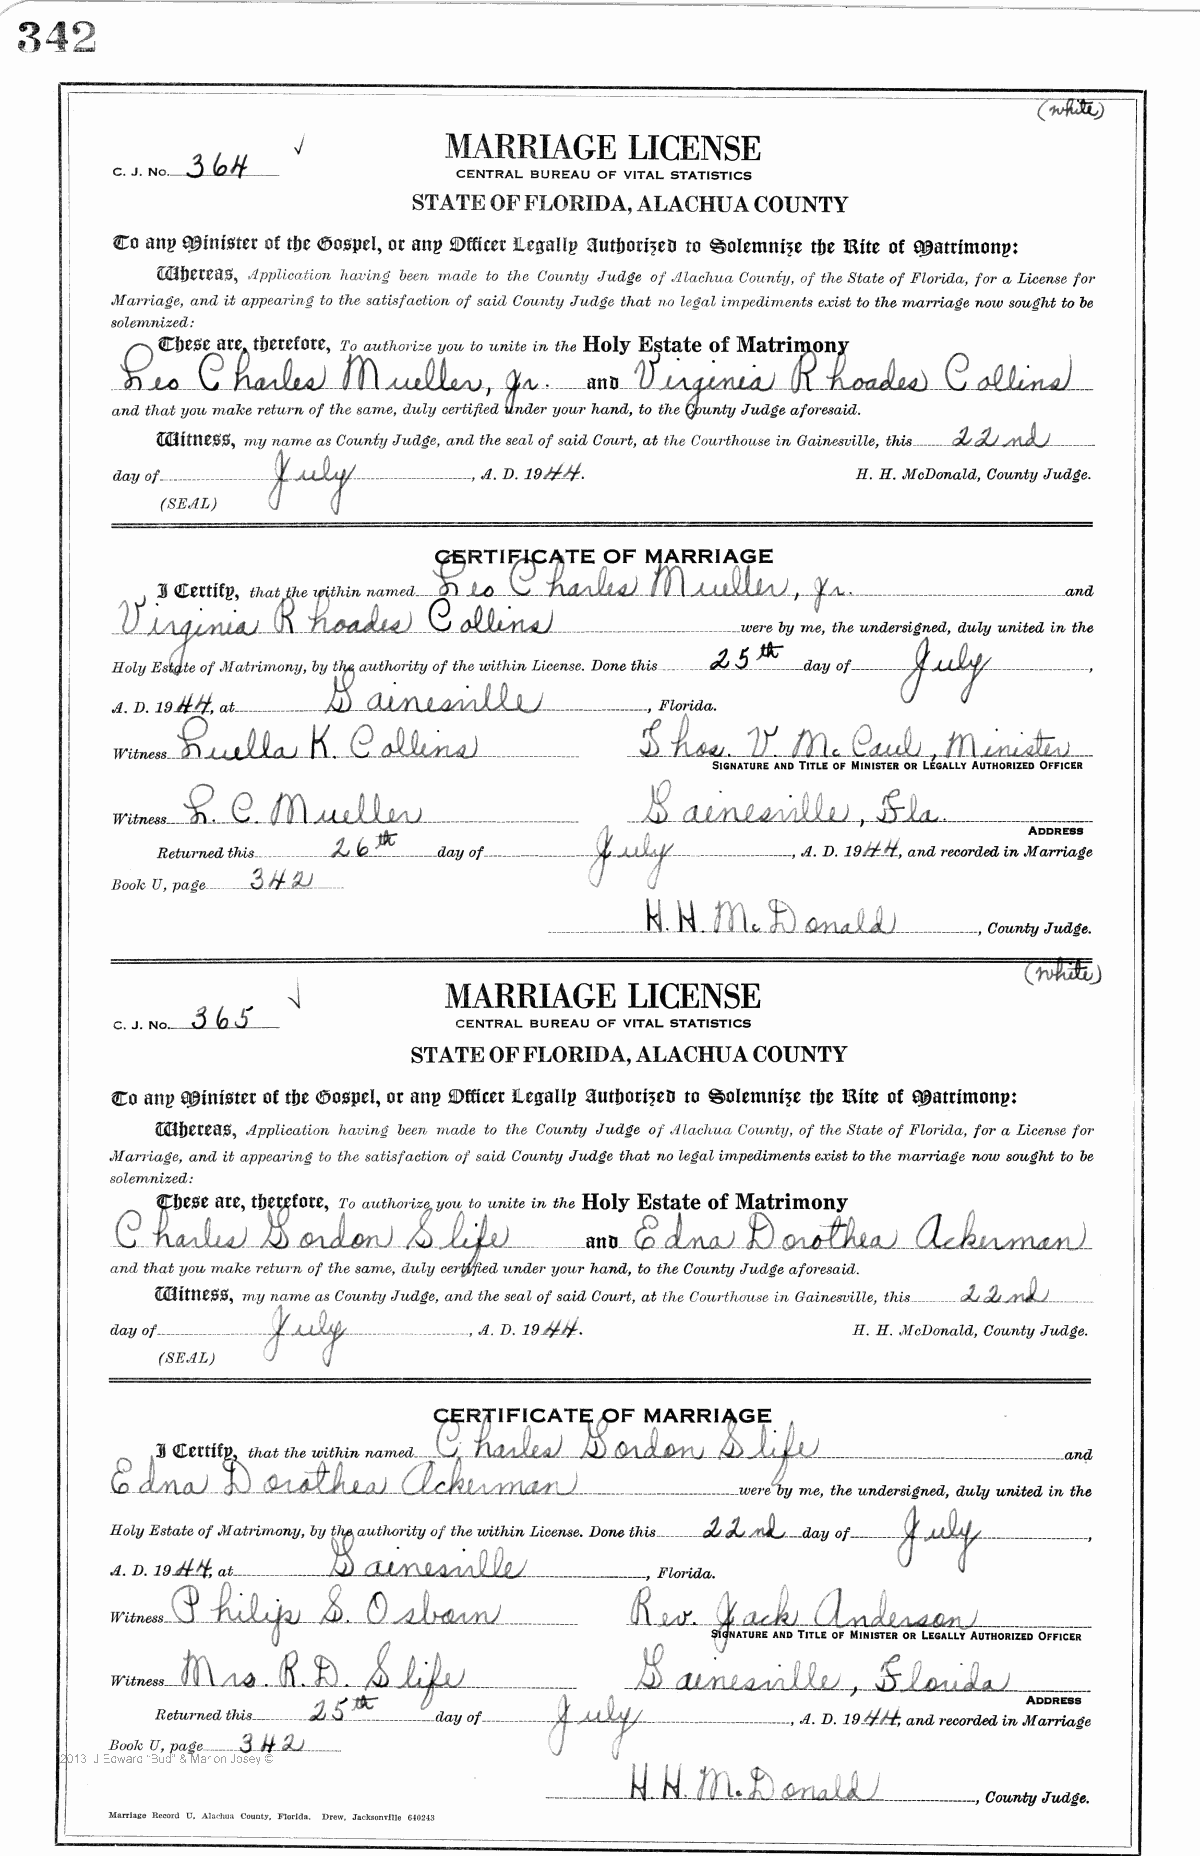 342
(white)
C. J. No. 364 ✓
MARRIAGE LICENSE
CENTRAL BUREAU OF VITAL STATISTICS
STATE OF FLORIDA, ALACHUA COUNTY
To any Minister of the Gospel, or any Officer Legally Authorized to Solemnize the Rite of Matrimony:
Whereas, Application having been made to the County Judge of Alachua County, of the State of Florida, for a License for
Marriage, and it appearing to the satisfaction of said County Judge that no legal impediments exist to the marriage now sought to be
solemnized:
These are, therefore, To authorize you to unite in the Holy Estate of Matrimony
Leo Charles Mueller, Jr. and Virginia Rhoades Collins
and that you make return of the same, duly certified under your hand, to the County Judge aforesaid.
Witness, my name as County Judge, and the seal of said Court, at the Courthouse in Gainesville, this 22nd
day of July, A. D. 1944. H. H. McDonald, County Judge.
(SEAL)
CERTIFICATE OF MARRIAGE
I Certify, that the within named Leo Charles Mueller, Jr. and
Virginia Rhoades Collins were by me, the undersigned, duly united in the
Holy Estate of Matrimony, by the authority of the within License. Done this 25th day of July,
A. D. 1944, at Gainesville, Florida.
Witness Luella K. Collins Thos. V. McCaul, Minister
SIGNATURE AND TITLE OF MINISTER OR LEGALLY AUTHORIZED OFFICER
Witness L. C. Mueller Gainesville, Fla.
ADDRESS
Returned this 26th day of July, A. D. 1944, and recorded in Marriage
Book U, page 342
H. H. McDonald, County Judge.
(white)
C. J. No. 365 ✓
MARRIAGE LICENSE
CENTRAL BUREAU OF VITAL STATISTICS
STATE OF FLORIDA, ALACHUA COUNTY
To any Minister of the Gospel, or any Officer Legally Authorized to Solemnize the Rite of Matrimony:
Whereas, Application having been made to the County Judge of Alachua County, of the State of Florida, for a License for
Marriage, and it appearing to the satisfaction of said County Judge that no legal impediments exist to the marriage now sought to be
solemnized:
These are, therefore, To authorize you to unite in the Holy Estate of Matrimony
Charles Gordon Slife and Edna Dorothea Ackerman
and that you make return of the same, duly certified under your hand, to the County Judge aforesaid.
Witness, my name as County Judge, and the seal of said Court, at the Courthouse in Gainesville, this 22nd
day of July, A. D. 1944. H. H. McDonald, County Judge.
(SEAL)
CERTIFICATE OF MARRIAGE
I Certify, that the within named Charles Gordon Slife and
Edna Dorothea Ackerman were by me, the undersigned, duly united in the
Holy Estate of Matrimony, by the authority of the within License. Done this 22nd day of July,
A. D. 1944, at Gainesville, Florida.
Witness Philip S. Osborn Rev. Jack Anderson
SIGNATURE AND TITLE OF MINISTER OR LEGALLY AUTHORIZED OFFICER
Witness Mrs. R. D. Slife Gainesville, Florida
ADDRESS
Returned this 25th day of July, A. D. 1944, and recorded in Marriage
Book U, page 342
2013 J Edward "Bud" & Marion Josey ©
H. H. McDonald, County Judge.
Marriage Record U, Alachua County, Florida. Drew, Jacksonville 640243